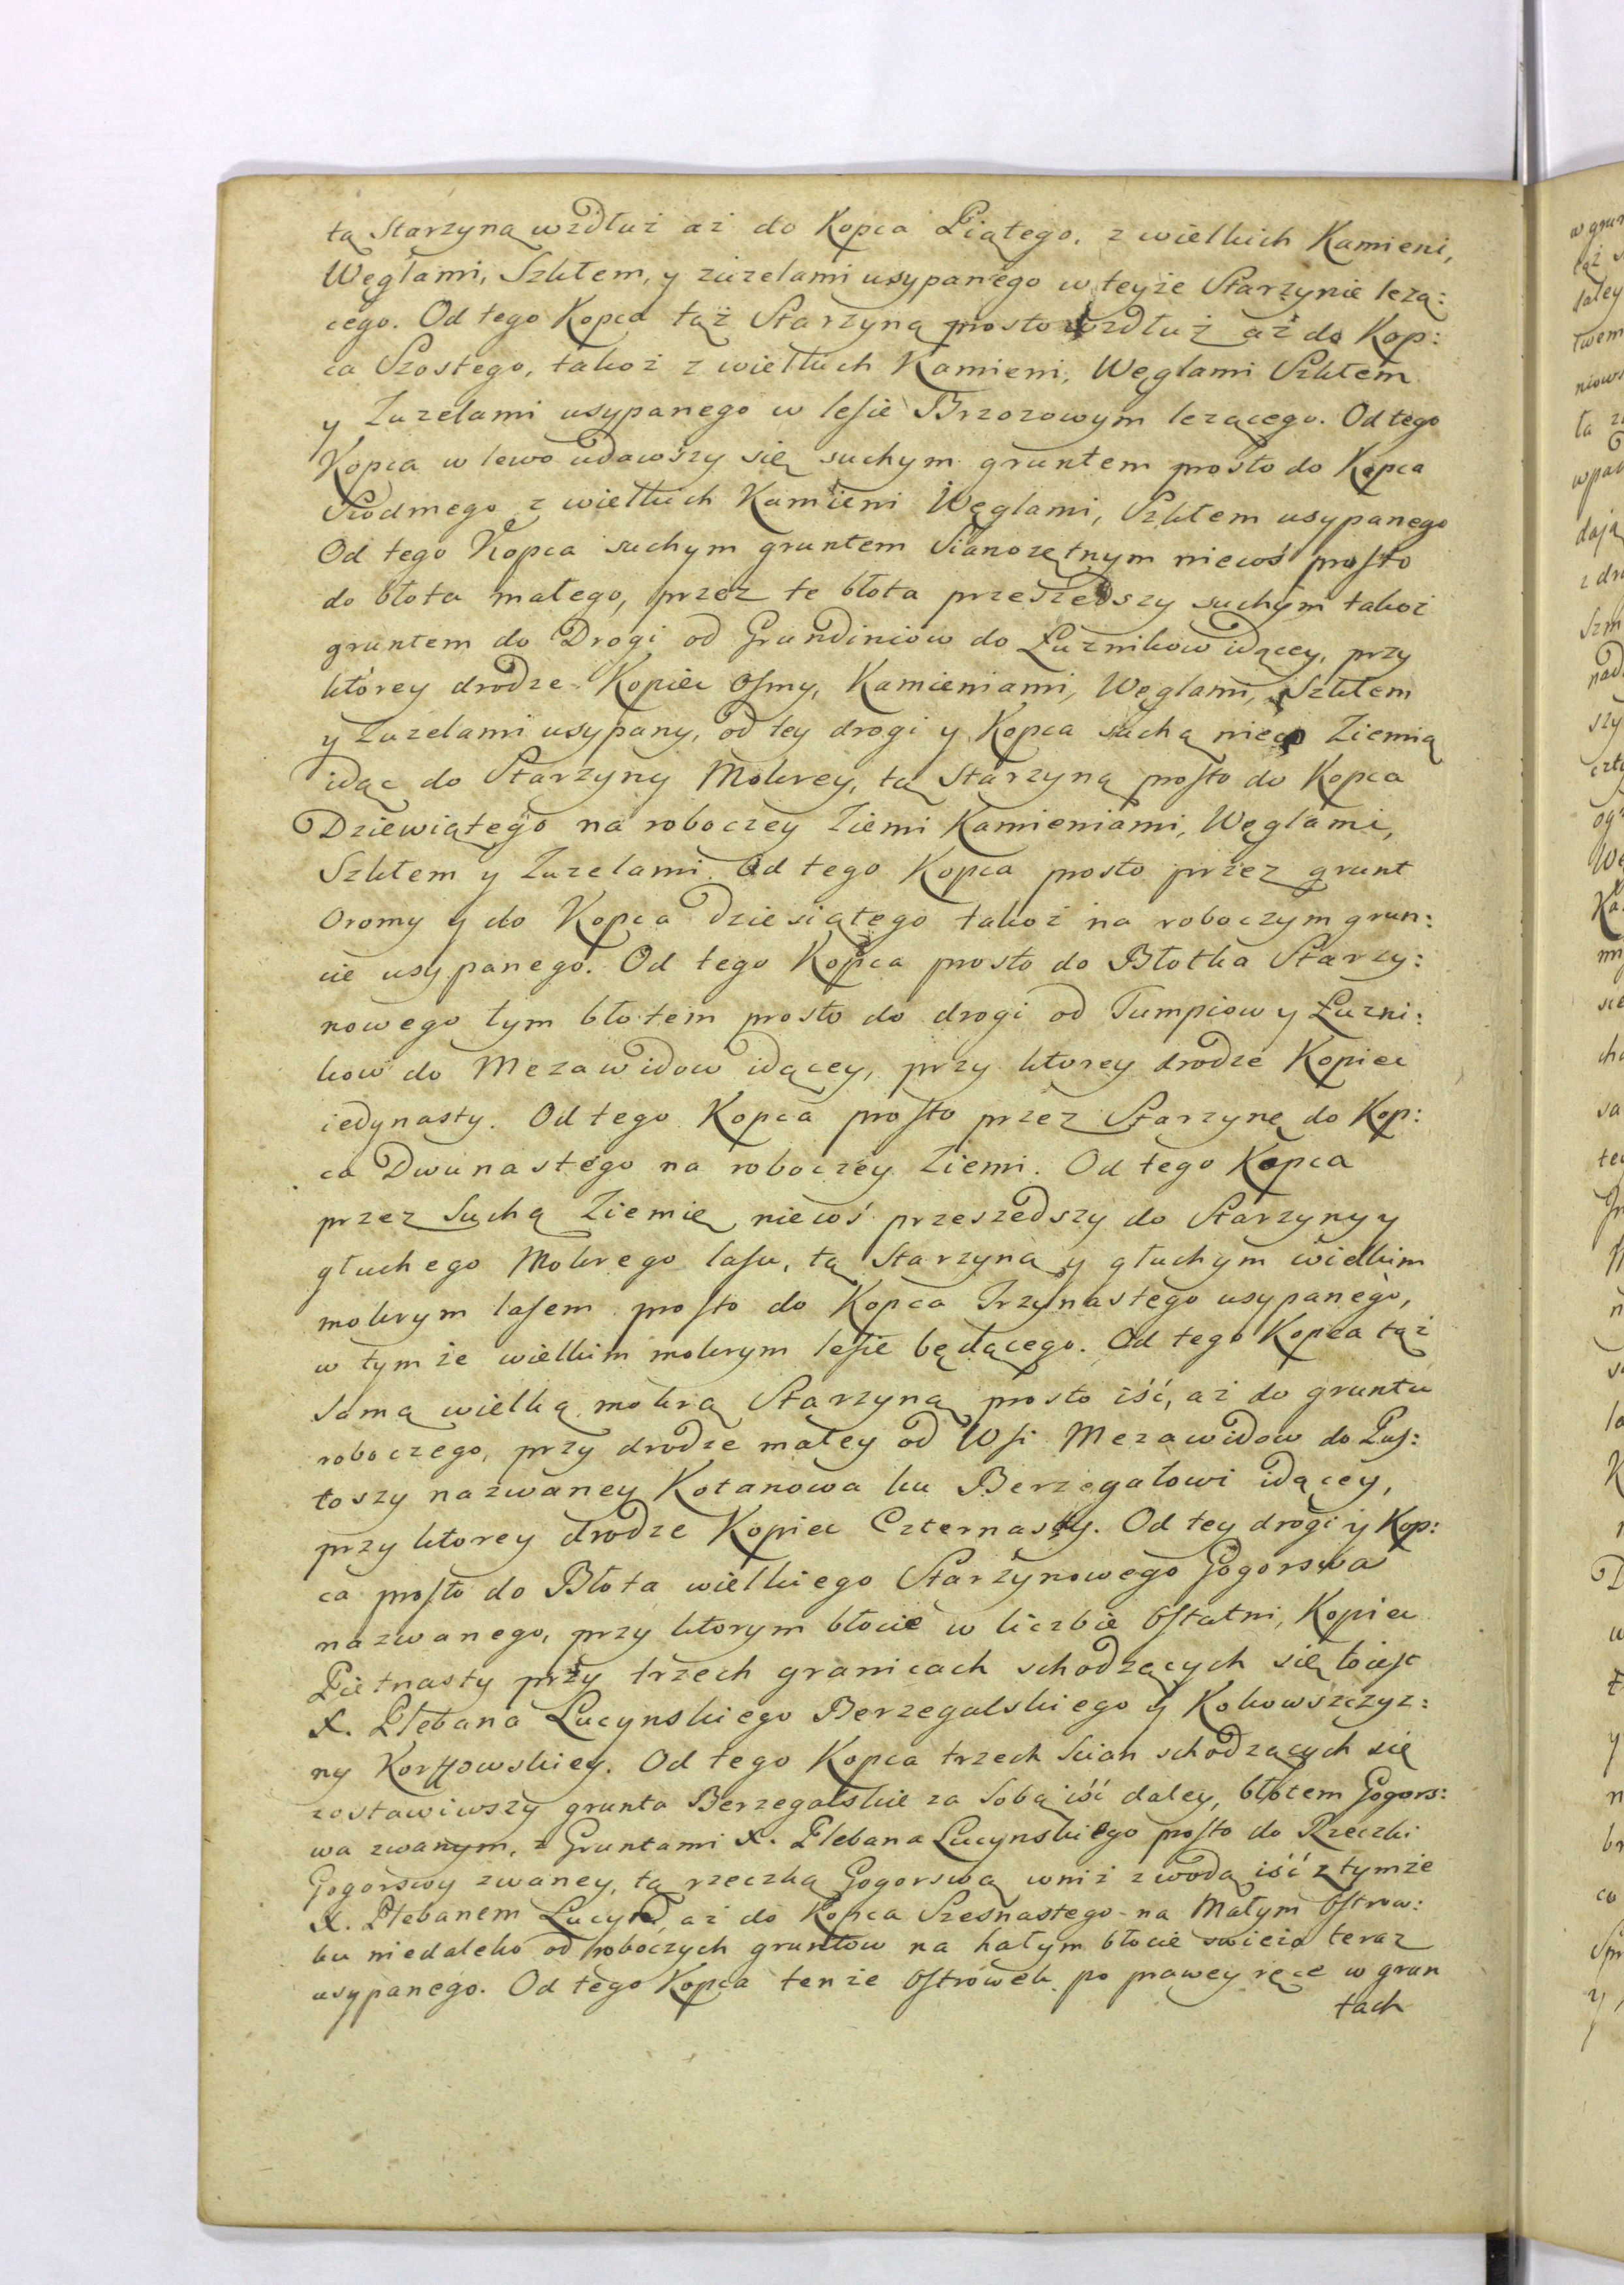 tą Starzyną wzdłuż aż do Kopca Piątego, z wielkich Kamieni,
Węglami, Szkłem, y zużelami usypanego w teyże Starzynie leżą:
cego. Od tego Kopca tąż Starzyną prosto wzdłuż aż do Kop:
ca Szostego, takoż z wielkich Kamieni, Węglami Szkłem
y Zuzelami usypanego w lesie Brzozowym lezącego. Od tego
Kopca w lewo udawszy się suchym gruntem prosto do Kopca
Siodmego z wielkich Kamieni Węglami, Szkłem usypanego
Od tego Kopca suchym gruntem Sianozętnym niecoś prosto
do błota małego, przez te błota przeszedszy suchym takoż
gruntem do Drogi od Grundiniow do Łuznikow idącey, przy
którey drodze Kopiec osmy, Kamieniami, Węglami, Szkłem
y Zuzelami usypany, od tey drogi y Kopca suchą nieco Ziemią
idąc do Starzyny Mokrey, tą Starzyną prosto do Kopca
Dziewiątego na roboczey Ziemi Kamieniami, Węglami,
Szkłem y Zuzelami. Od tego Kopca prosto przez grunt
Oromy y do Kopca dziesiątego takoż na roboczym grun:
cie usypanego. Od tego Kopca prosto do Błotka Starzy:
nowego tym błotem prosto do drogi od Tumpiow y Łuzni:
kow do Mezawidow idącey, przy ktorey drodze Kopiec
iedynasty. Od tego Kopca prosto przez Starzynę do Kop:
ca Dwunastego na roboczey Ziemi. Od tego Kopca
przez Suchą Ziemię niecoś przeszedszy do Starzyny y
głuchego Mokrego lasu, tą Starzyną y głuchym wielkim
mokrym lasem prosto do Kopca Trzynastego usypanego,
w tym że wielkim mokrym lesie będącego. Od tego Kopca tąż
samą wielką mokrą Starzyną prosto iść, aż do gruntu
roboczego, przy drodze małey od Wsi Mezawidow do Pus:
toszy nazwaney Kotanowa ku Berzegałowi idącey,
przy ktorey drodze Kopiec Czternasty. Od tey drogi y Kop:
ca prosto do Błota wielkiego Starzynowego Gogorswa
nazwanego, przy ktorym błocie w liczbie Ostatni, Kopiec
Piętnasty przy trzech granicach schodzących się to iest
X. Plebana Lucynskiego Berzegalskiego y Kokowszczyz:
ny Korffowskiey. Od tego Kopca trzech Scian schodzących się
zostawiwszy grunta Berzegalskie za Sobą iść daley, błotem Gogors:
wa zwanym, z Gruntami X. Plebana Lucynskiego prosto do Rzeczki
Gogorswy zwaney, tą rzeczką Gogorswą wniż z wodą iść z tymże
X. Plebanem Lucyn, aż do Kopca Szesnastego na Małym Ostrow:
ku niedaleko od roboczych gruntow na hałym błocie swieżo teraz
usypanego. Od tego Kopca tenże Ostrówek po prawey ręce w grun
tach